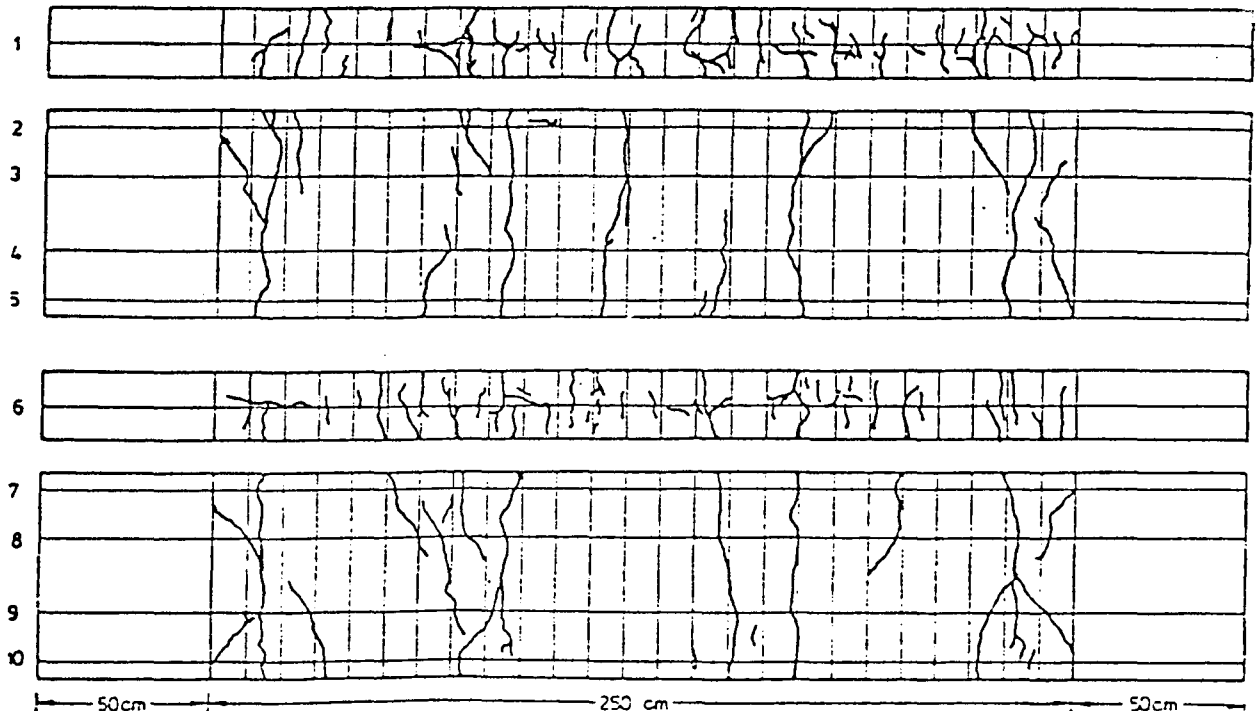 1
2
3
4
5
6
7
8
9
10
50cm 250 cm 50cm